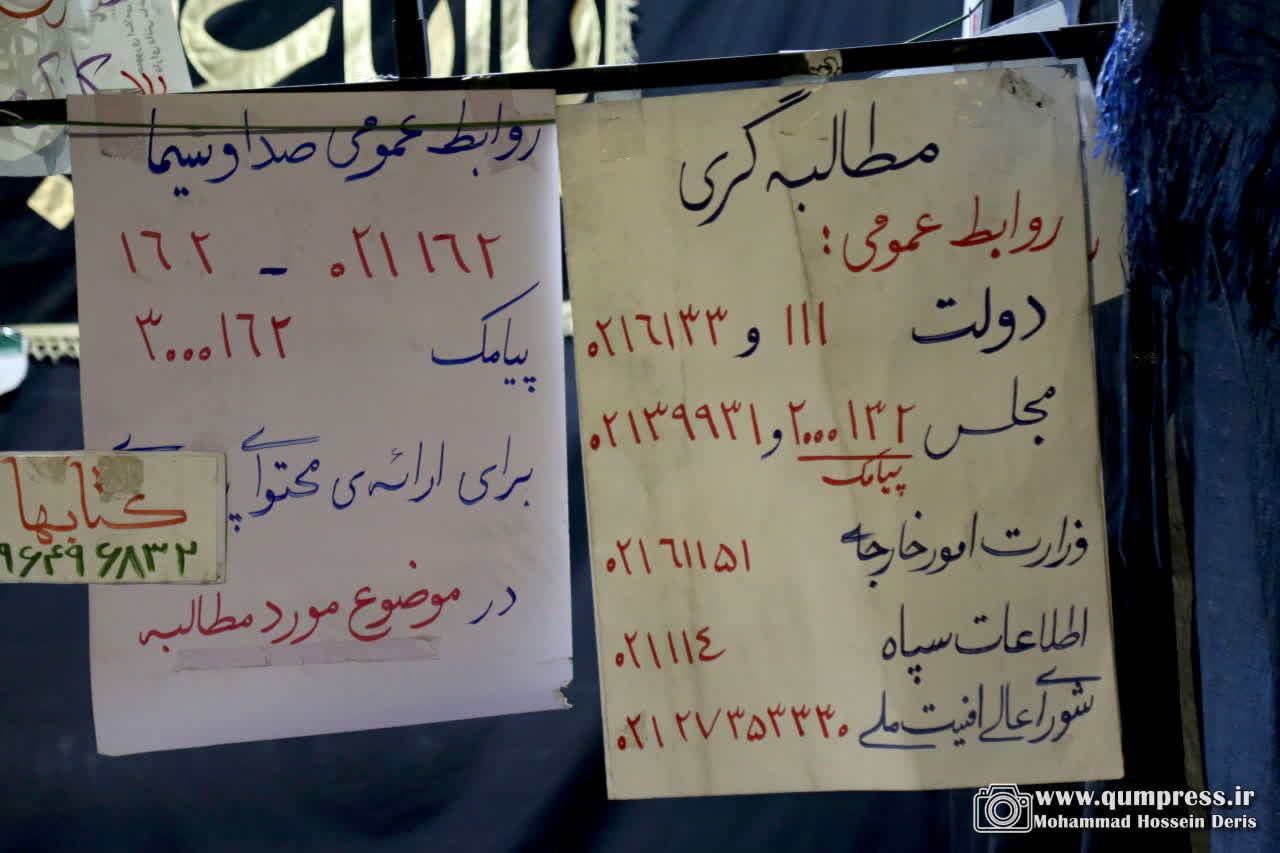 مطالبه گری
روابط عمومی :
دولت ۱۱۱ و ۰۲۱۶۱۳۳
مجلس ۲۰۰۰۱۳۲ و ۰۲۱۳۹۹۳۱
پیامک
وزارت امور خارجه ۰۲۱۶۱۱۵۱
اطلاعات سپاه ۰۲۱۱۱۴
شورای عالی امنیت ملی ۰۲۱۲۷۳۵۳۳۳۰
روابط عمومی صدا و سیما
۰۲۱۱۶۲ - ۱۶۲
پیامک ۳۰۰۰۱۶۲
برای ارائه ی محتوای
در موضوع مورد مطالبه
کتابها
۹۶۴۹۶۸۳۲
www.qumpress.ir
Mohammad Hossein Deris